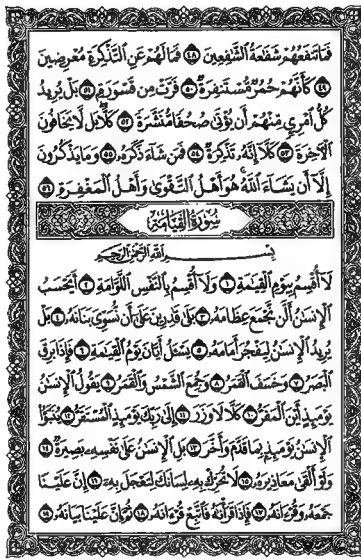 فَمَا تَنفَعُهُمْ شَفَٰعَةُ ٱلشَّٰفِعِينَ ٤٨ فَمَا لَهُمْ عَنِ ٱلتَّذْكِرَةِ مُعْرِضِينَ
٤٩ كَأَنَّهُمْ حُمُرٌ مُّسْتَنفِرَةٌ ٥٠ فَرَّتْ مِن قَسْوَرَةٍۭ ٥١ بَلْ يُرِيدُ
كُلُّ ٱمْرِئٍ مِّنْهُمْ أَن يُؤْتَىٰ صُحُفًا مُّنَشَّرَةً ٥٢ كَلَّا بَل لَّا يَخَافُونَ
ٱلْءَاخِرَةَ ٥٣ كَلَّآ إِنَّهُۥ تَذْكِرَةٌ ٥٤ فَمَن شَآءَ ذَكَرَهُۥ ٥٥ وَمَا يَذْكُرُونَ
إِلَّآ أَن يَشَآءَ ٱللَّهُ هُوَ أَهْلُ ٱلتَّقْوَىٰ وَأَهْلُ ٱلْمَغْفِرَةِ ٥٦
سُورَةُ الْقِيَامَةِ
بِسْمِ ٱللَّهِ ٱلرَّحْمَٰنِ ٱلرَّحِيمِ
لَآ أُقْسِمُ بِيَوْمِ ٱلْقِيَٰمَةِ ١ وَلَآ أُقْسِمُ بِٱلنَّفْسِ ٱللَّوَّامَةِ ٢ أَيَحْسَبُ
ٱلْإِنسَٰنُ أَلَّن نَّجْمَعَ عِظَامَهُۥ ٣ بَلَىٰ قَٰدِرِينَ عَلَىٰٓ أَن نُّسَوِّىَ بَنَانَهُۥ ٤ بَلْ
يُرِيدُ ٱلْإِنسَٰنُ لِيَفْجُرَ أَمَامَهُۥ ٥ يَسْـَٔلُ أَيَّانَ يَوْمُ ٱلْقِيَٰمَةِ ٦ فَإِذَا بَرِقَ
ٱلْبَصَرُ ٧ وَخَسَفَ ٱلْقَمَرُ ٨ وَجُمِعَ ٱلشَّمْسُ وَٱلْقَمَرُ ٩ يَقُولُ ٱلْإِنسَٰنُ
يَوْمَئِذٍ أَيْنَ ٱلْمَفَرُّ ١٠ كَلَّا لَا وَزَرَ ١١ إِلَىٰ رَبِّكَ يَوْمَئِذٍ ٱلْمُسْتَقَرُّ ١٢ يُنَبَّؤُا۟
ٱلْإِنسَٰنُ يَوْمَئِذٍۭ بِمَا قَدَّمَ وَأَخَّرَ ١٣ بَلِ ٱلْإِنسَٰنُ عَلَىٰ نَفْسِهِۦ بَصِيرَةٌ ١٤
وَلَوْ أَلْقَىٰ مَعَاذِيرَهُۥ ١٥ لَا تُحَرِّكْ بِهِۦ لِسَانَكَ لِتَعْجَلَ بِهِۦٓ ١٦ إِنَّ عَلَيْنَا
جَمْعَهُۥ وَقُرْءَانَهُۥ ١٧ فَإِذَا قَرَأْنَٰهُ فَٱتَّبِعْ قُرْءَانَهُۥ ١٨ ثُمَّ إِنَّ عَلَيْنَا بَيَانَهُۥ ١٩